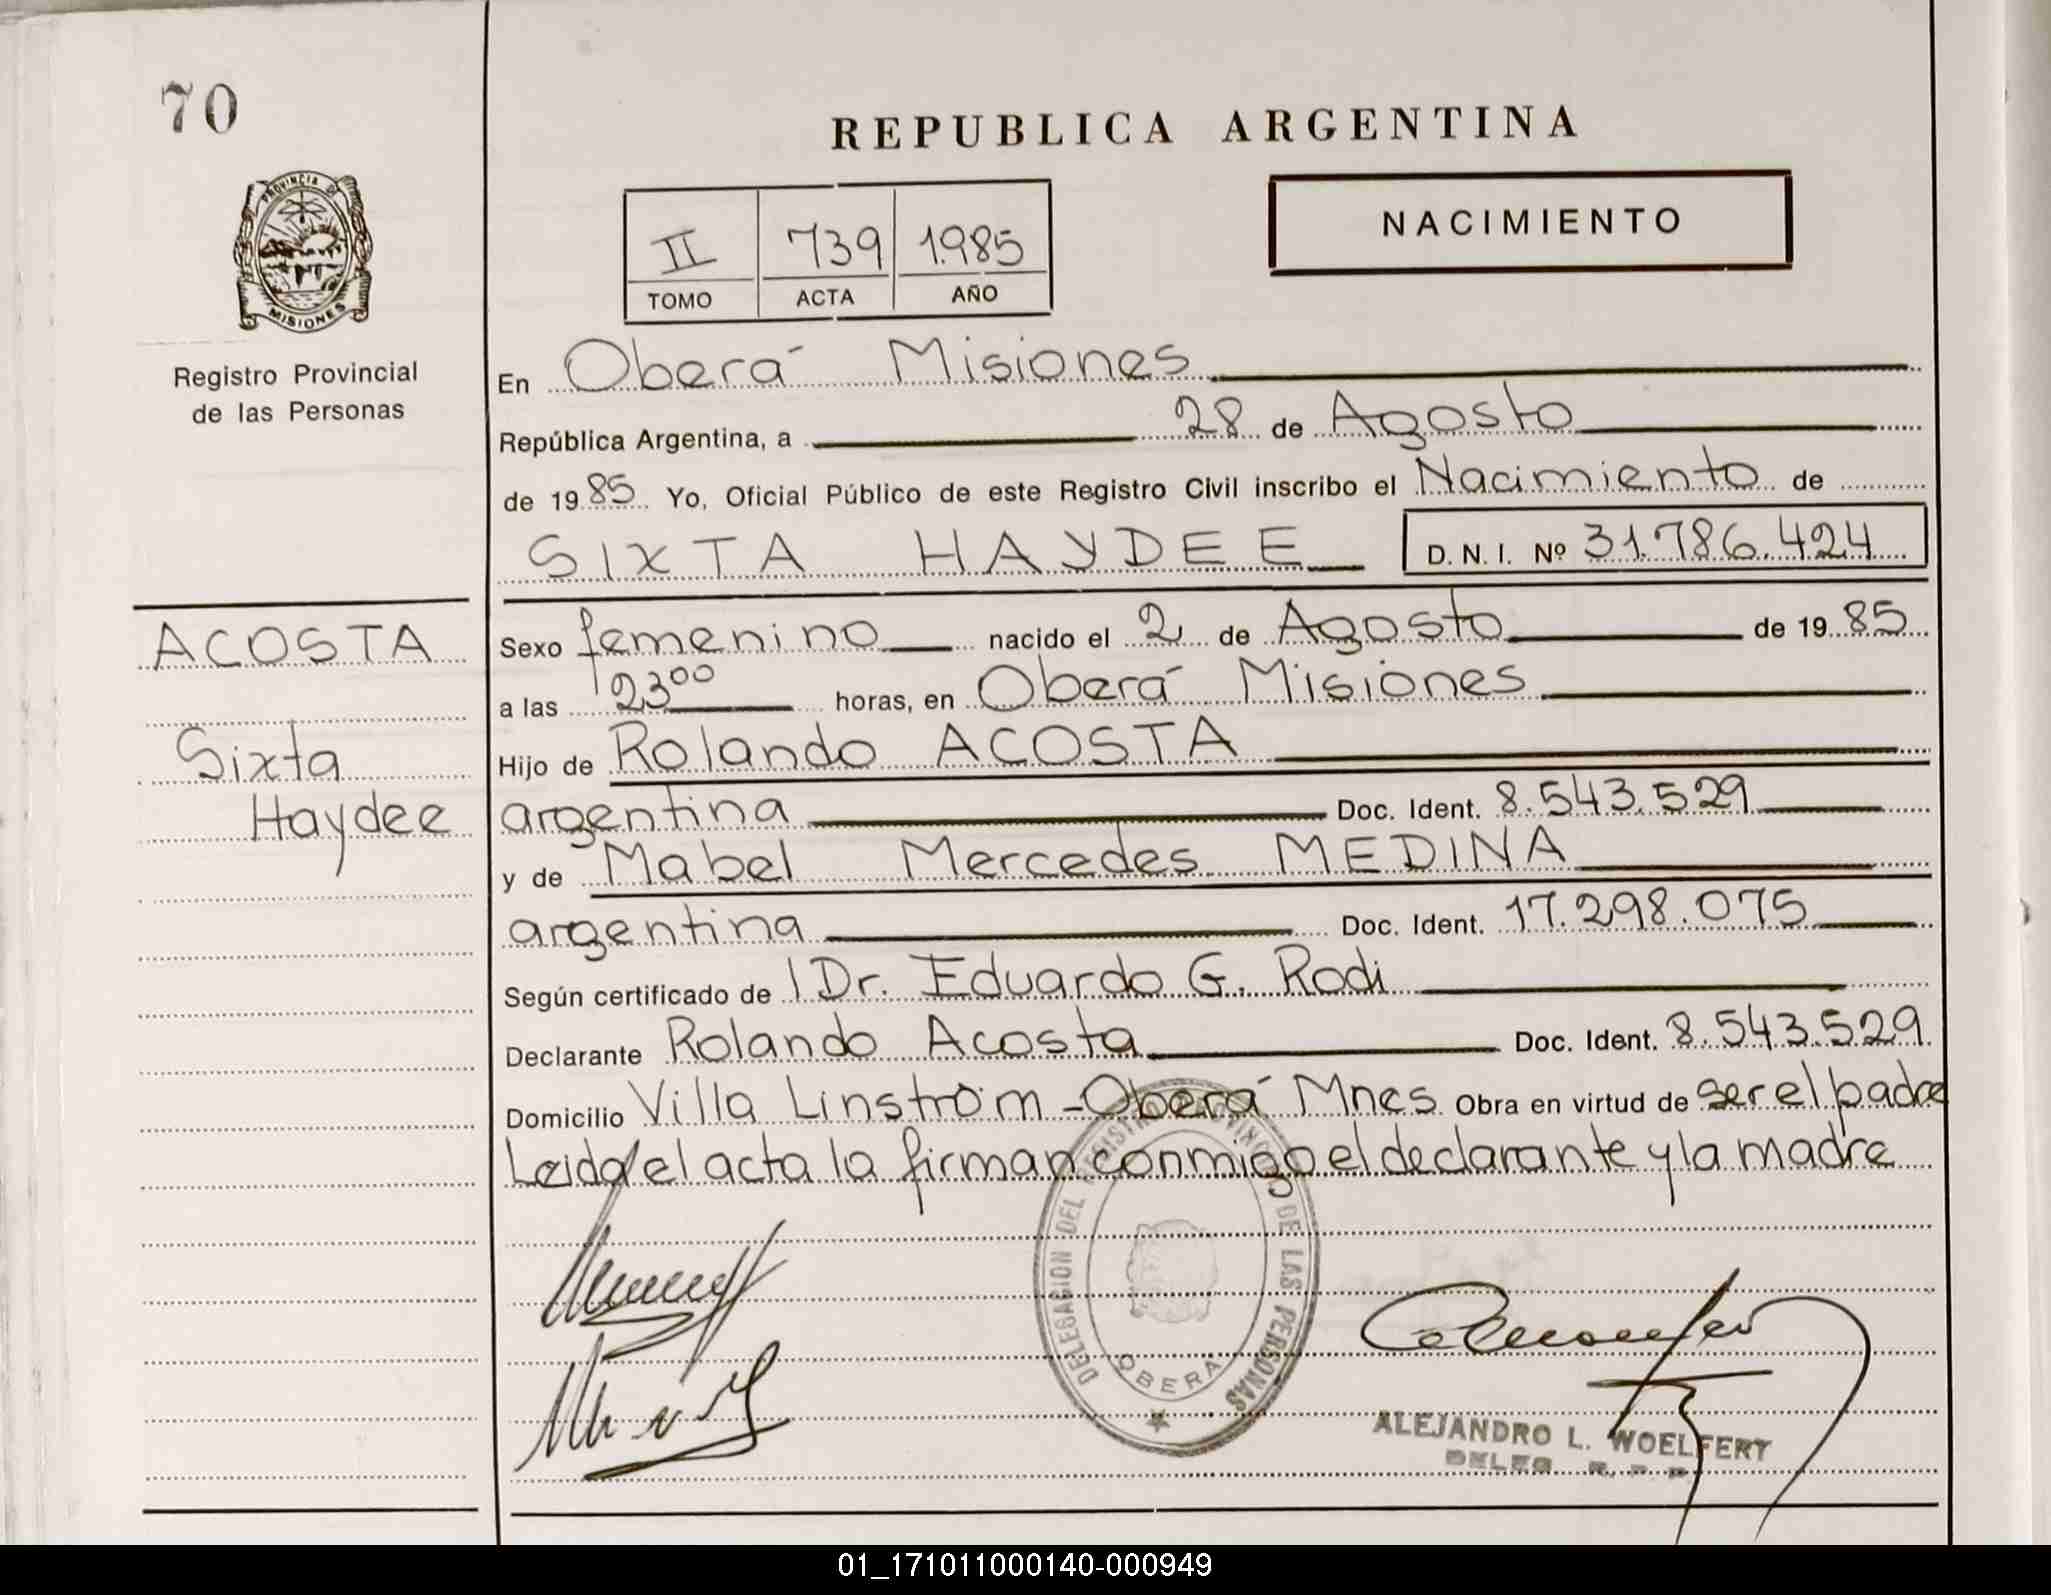 70
PROVINCIA DE
MISIONES
Registro Provincial
de las Personas
ACOSTA
Sixta
Haydee
REPUBLICA ARGENTINA
II 739 1.985
TOMO ACTA AÑO
NACIMIENTO
En Oberá Misiones
República Argentina, a 28 de Agosto
de 19 85 Yo, Oficial Público de este Registro Civil inscribo el Nacimiento de
SIXTA HAYDEE D. N. I. Nº 31.786.424
Sexo femenino nacido el 2 de Agosto de 19 85
a las 23⁰⁰ horas, en Oberá Misiones
Hijo de Rolando ACOSTA
argentina Doc. Ident. 8.543.529
y de Mabel Mercedes MEDINA
argentina Doc. Ident. 17.298.075
Según certificado de Dr. Eduardo G. Rodi
Declarante Rolando Acosta Doc. Ident. 8.543.529
Domicilio Villa Linström - Oberá Mnes Obra en virtud de ser el padre
Leida el acta la firman conmigo el declarante y la madre
DELEGACION DEL REGISTRO PROVINCIAL DE LAS PERSONAS
OBERA
ALEJANDRO L. WOELFERT
DELEG. R. P. P.
01_171011000140-000949